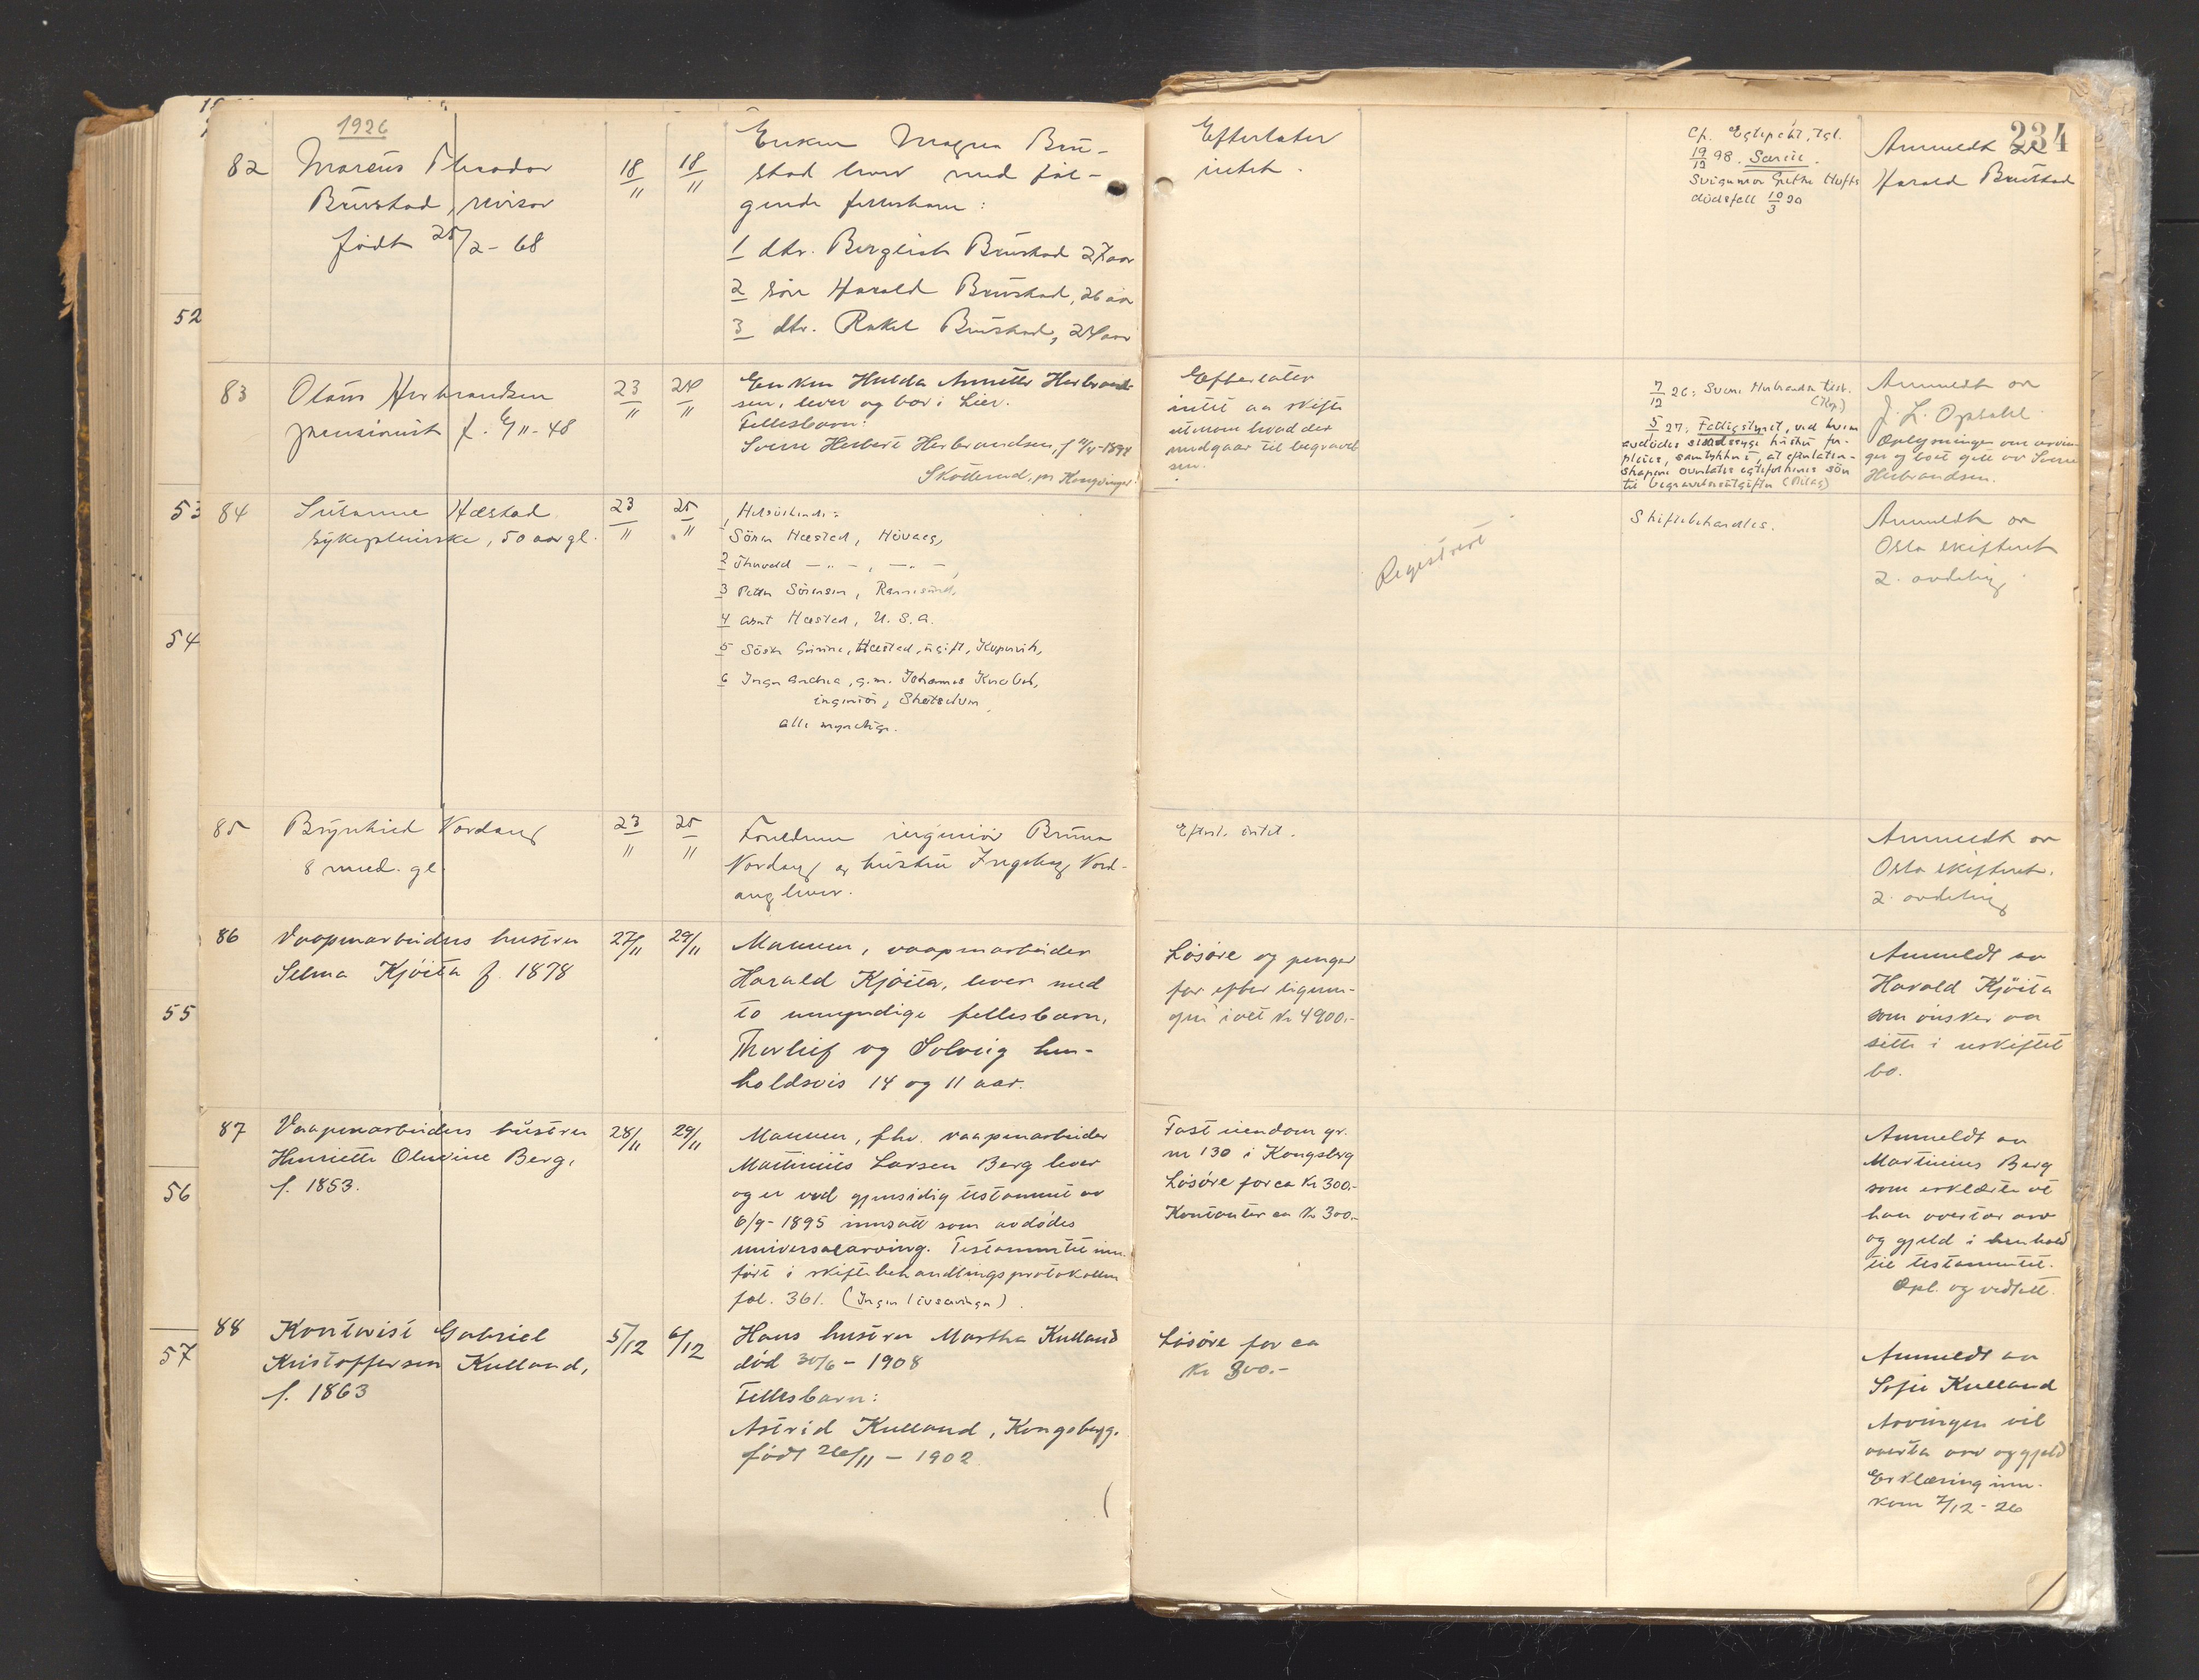 234
1926
82
Marcus Theodor
Brustad, revisor
født 25/2 - 68
18/11
18/11
Enken Magna Bru-
stad lever med føl-
gende fellesbarn:
1 dtr. Bergliot Brustad 27 aar
2 søn Harald Brustad, 26 aar
3 dtr. Rakel Brustad, 24 aar
Efterlater
intet.
Cf. Egtepakt, tgl.
19/12 98. Særeie.
Svigermor Grethe Hofts
dødsfall 10/3 20
Anmeldt av
Harald Brustad
52
83
Olaus Herbrandsen
pensionist f. 6/11 - 48
23/11
24/11
Enken Hulda Annette Herbrand-
sen, lever og bor i Lier.
Fellesbarn:
Sverre Herbert Herbrandsen, f 11/4-1894
Skotterud, pr Kongsvinger
Efterlater
intet aa skifte
utenom hvad der
medgaar til begravel-
sen.
7/12 26: Sverre Herbrandsen tilsk.
(Kop.)
5/1 27: Fattigstyret, ved hvem
avdødes sindssyge hustru for-
pleies, samtykket i, at efterlaten-
skapene overlates egtefolkenes søn
til begravelsesutgifter (Bilag)
Anmeldt av
J. L. Opdahl
Oplysninger om arvin-
ger og boet gitt av Sverre
Herbrandsen.
53
84
Susanne Hæstad
sykepleierske, 50 aar gl.
23/11
25/11
Helsøskende:
1 Søren Hæsted, Høvaag,
2 Thorvald — " — , — " — ,
3 Peder Sørensen, Ramsund,
4 Arnt Hæsted, U. S. A.
5 Søster Grine, Hæsted, ugift, Kopervik,
6 Inga Andrea, g.m. Johannes Knaben,
ingeniør, Skotselven,
alle myndige.
Registrert
Skiftebehandles.
Anmeldt av
Oslo skifteret
2. avdeling
54
85
Brynhild Nordang
8 mnd. gl.
23/11
25/11
Foreldrene ingeniør Bruno
Nordang og hustru Ingeborg Nord-
ang lever.
Efterl. intet.
Anmeldt av
Oslo skifteret.
2. avdeling
86
Vaapenarbeiders hustru
Selma Kjøita f. 1878
27/11
29/11
Mannen, vaapenarbeider
Harald Kjøita, lever med
to umyndige fellesbarn,
Thorleif og Solveig hen-
holdsvis 14 og 11 aar.
Løsøre og penger
for efter lignin-
gen i alt kr 4900.-
Anmeldt av
Harald Kjøita
som ønsker aa
sitte i uskiftet
bo.
55
87
Vaapenarbeiders hustru
Henriette Oluvine Berg,
f. 1853.
28/11
29/11
Mannen, fhv. vaapenarbeider
Martinius Larsen Berg lever
og er ved gjensidig testament av
6/9 - 1895 innsatt som avdødes
universalarving. Testamentet inn-
ført i skiftebehandlingsprotokollen
fol. 361. (Ingen livsarvinger).
Fast eiendom gr.
nr 130 i Kongsberg
Løsøre for ca kr 300.-
Kontanter ca kr 300.-
Anmeldt av
Martinius Berg
som erklærte at
han overtar arv
og gjeld i henhold
til testamentet.
Opl. og vedtatt.
56
88
Kontorist Gabriel
Kristoffersen Kulland,
f. 1863
5/12
6/12
Hans hustru Martha Kulland
død 30/6 - 1908
Fellesbarn:
Astrid Kulland, Kongsberg.
født 26/11 - 1902
Løsøre for ca
kr 800.-
Anmeldt av
Sofie Kulland
Arvingen vil
overta arv og gjeld
Erklæring inn-
kom 7/12 - 26
57